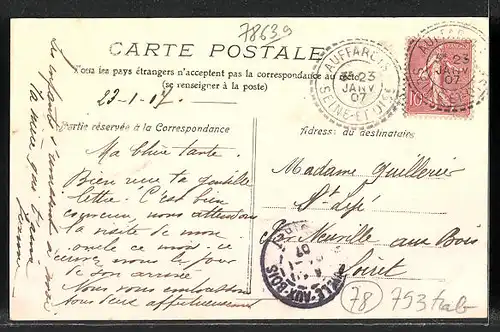 78639
CARTE POSTALE
Tous les pays étrangers n'acceptent pas la correspondance au recto
(se renseigner à la poste)
23-1-07.
AUFFARGIS
3E 23
JANV
07
SEINE-ET-OISE
AUFFARGIS
3E 23
JANV
07
10
Partie réservée à la Correspondance
Ma chère tante.
Bien reçu ta gentille
lettre. C'est bien
convenu, nous attendons
la visite de mon
oncle ce mois-ci
le jour
de son arrivée
Nous vous embrassons
tous deux affectueusement
Adresse du destinataire
Madame Guillerier
St Lyé
par Neuville aux Bois
Loiret
NEUVILLE-AUX-BOIS
07
78
793